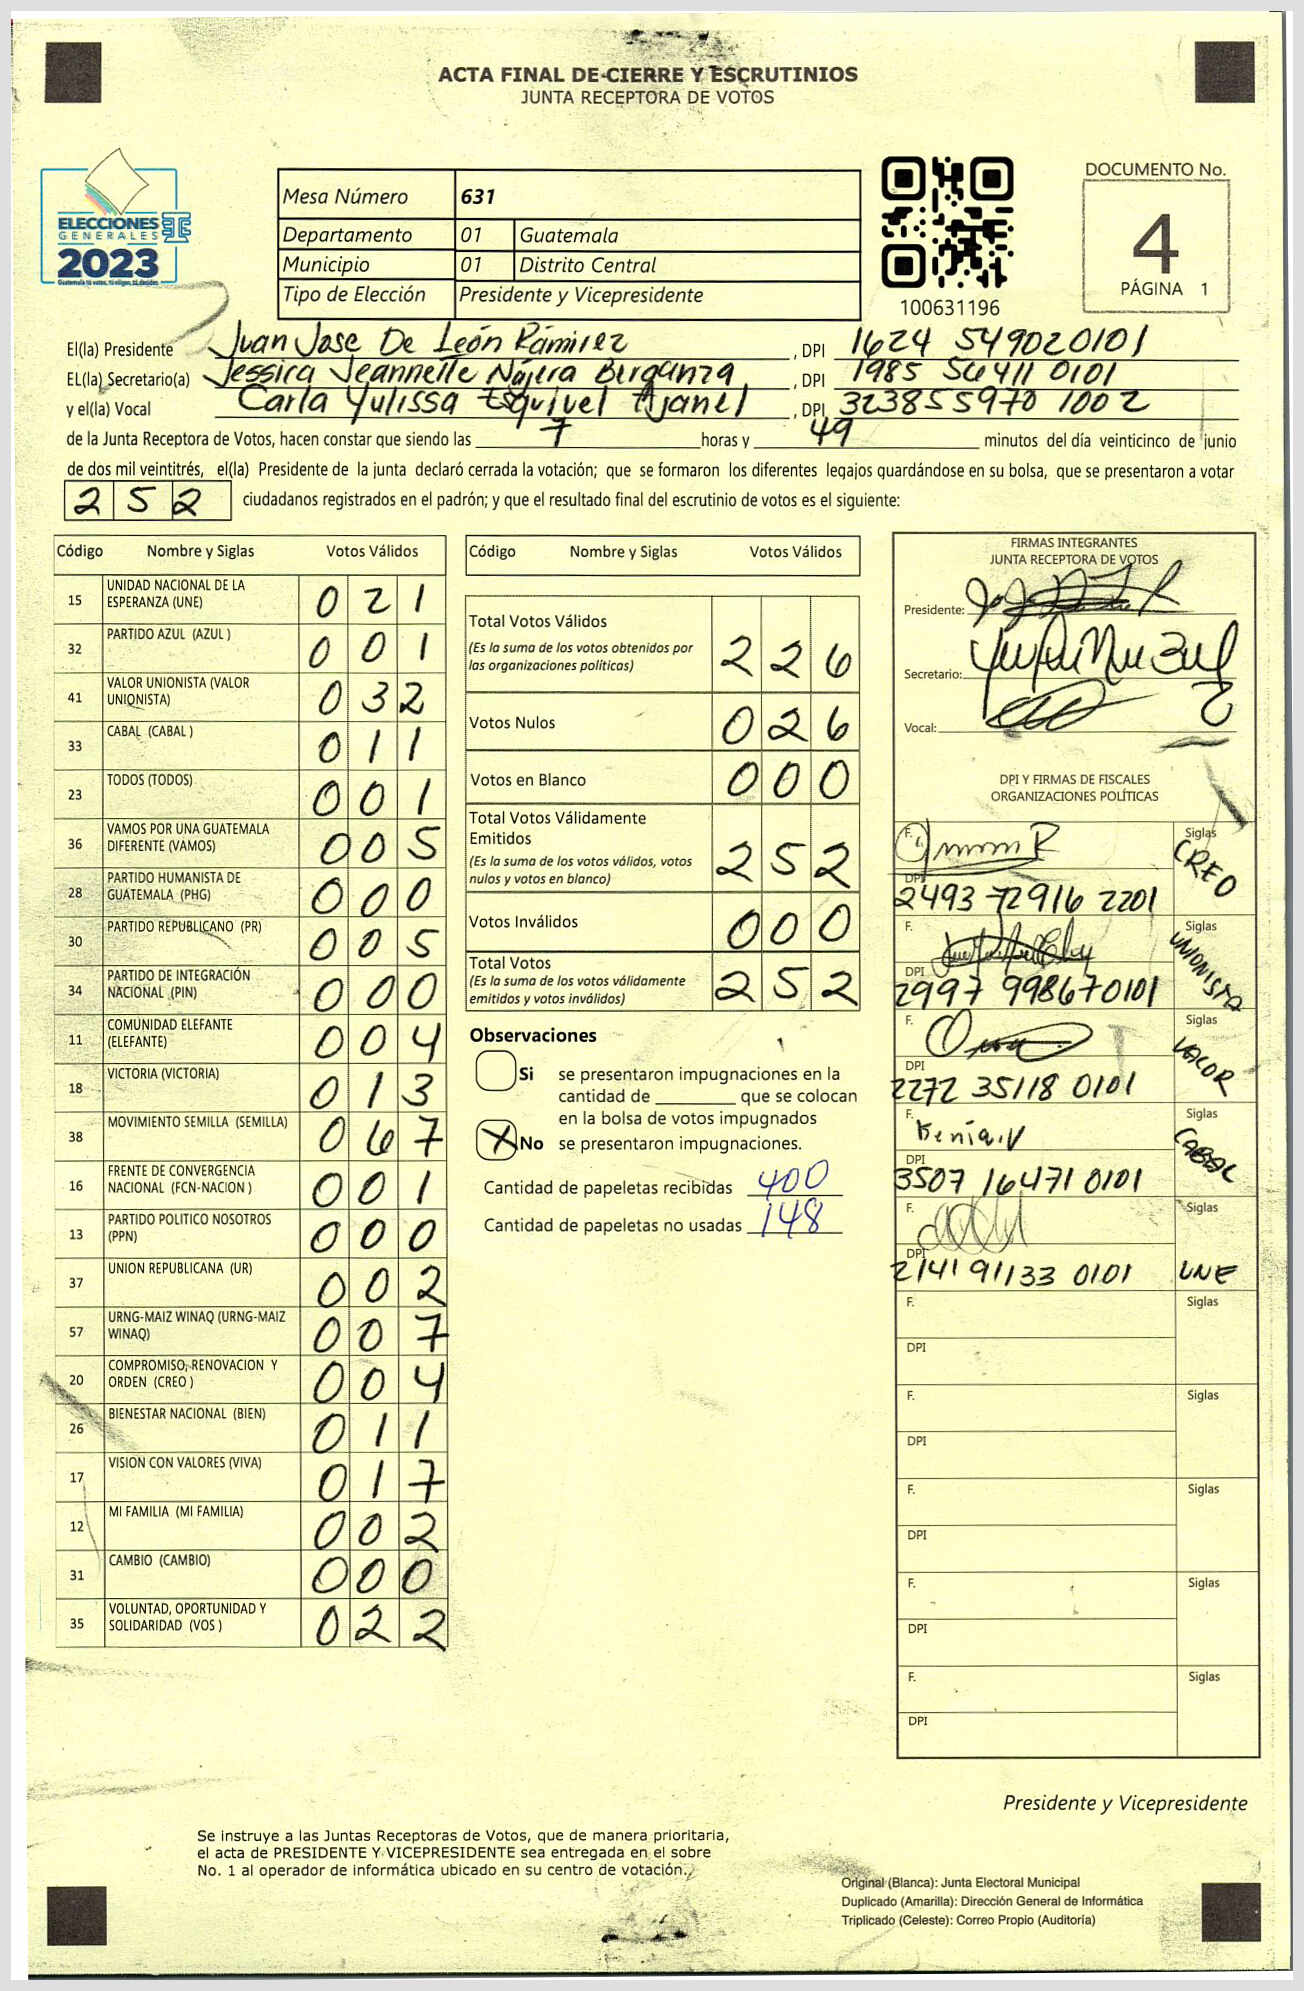 ACTA FINAL DE CIERRE Y ESCRUTINIOS
JUNTA RECEPTORA DE VOTOS
ELECCIONES
GENERALES
2023
Mesa Número 631
Departamento 01 Guatemala
Municipio 01 Distrito Central
Tipo de Elección Presidente y Vicepresidente
100631196
DOCUMENTO No.
4
PÁGINA 1
El(la) Presidente Juan Jose De León Rámirez, DPI 1624 549020101
EL(la) Secretario(a) Jessica Jeannette Nájera Berganza, DPI 1985 56411 0101
y el(la) Vocal Carla Yulissa Esquivel Ajanel, DPI 323855970 1002
de la Junta Receptora de Votos, hacen constar que siendo las 7 horas y 49 minutos del día veinticinco de junio
de dos mil veintitrés, el(la) Presidente de la junta declaró cerrada la votación; que se formaron los diferentes legajos quardándose en su bolsa, que se presentaron a votar
252 ciudadanos registrados en el padrón; y que el resultado final del escrutinio de votos es el siguiente:
Código Nombre y Siglas Votos Válidos
15 UNIDAD NACIONAL DE LA ESPERANZA (UNE) 021
32 PARTIDO AZUL (AZUL ) 001
41 VALOR UNIONISTA (VALOR UNIONISTA) 032
33 CABAL (CABAL ) 011
23 TODOS (TODOS) 001
36 VAMOS POR UNA GUATEMALA DIFERENTE (VAMOS) 005
28 PARTIDO HUMANISTA DE GUATEMALA (PHG) 000
30 PARTIDO REPUBLICANO (PR) 005
34 PARTIDO DE INTEGRACIÓN NACIONAL (PIN) 000
11 COMUNIDAD ELEFANTE (ELEFANTE) 004
18 VICTORIA (VICTORIA) 013
38 MOVIMIENTO SEMILLA (SEMILLA) 067
16 FRENTE DE CONVERGENCIA NACIONAL (FCN-NACION ) 001
13 PARTIDO POLITICO NOSOTROS (PPN) 000
37 UNION REPUBLICANA (UR) 002
57 URNG-MAIZ WINAQ (URNG-MAIZ WINAQ) 007
20 COMPROMISO, RENOVACION Y ORDEN (CREO ) 004
26 BIENESTAR NACIONAL (BIEN) 011
17 VISION CON VALORES (VIVA) 017
12 MI FAMILIA (MI FAMILIA) 002
31 CAMBIO (CAMBIO) 000
35 VOLUNTAD, OPORTUNIDAD Y SOLIDARIDAD (VOS ) 022
Código Nombre y Siglas Votos Válidos
Total Votos Válidos 226
(Es la suma de los votos obtenidos por
las organizaciones políticas)
Votos Nulos 026
Votos en Blanco 000
Total Votos Válidamente
Emitidos 252
(Es la suma de los votos válidos, votos
nulos y votos en blanco)
Votos Inválidos 000
Total Votos 252
(Es la suma de los votos válidamente
emitidos y votos inválidos)
Observaciones
Si se presentaron impugnaciones en la
cantidad de ________ que se colocan
en la bolsa de votos impugnados
X No se presentaron impugnaciones.
Cantidad de papeletas recibidas 400
Cantidad de papeletas no usadas 148
FIRMAS INTEGRANTES
JUNTA RECEPTORA DE VOTOS
Presidente:
Secretario:
Vocal:
DPI Y FIRMAS DE FISCALES
ORGANIZACIONES POLÍTICAS
F. Siglas CREO
DPI 2493 72916 2201
F. Siglas UNIONISTA
DPI 2997 998670101
F. Siglas VALOR
DPI 2272 35118 0101
F. Kenia.V Siglas CABAL
DPI 3507 16471 0101
F. Siglas UNE
DPI 2141 91133 0101
F. Siglas
DPI
F. Siglas
DPI
F. Siglas
DPI
F. Siglas
DPI
F. Siglas
DPI
Presidente y Vicepresidente
Se instruye a las Juntas Receptoras de Votos, que de manera prioritaria,
el acta de PRESIDENTE Y VICEPRESIDENTE sea entregada en el sobre
No. 1 al operador de informática ubicado en su centro de votación.
Original (Blanca): Junta Electoral Municipal
Duplicado (Amarilla): Dirección General de Informática
Triplicado (Celeste): Correo Propio (Auditoría)